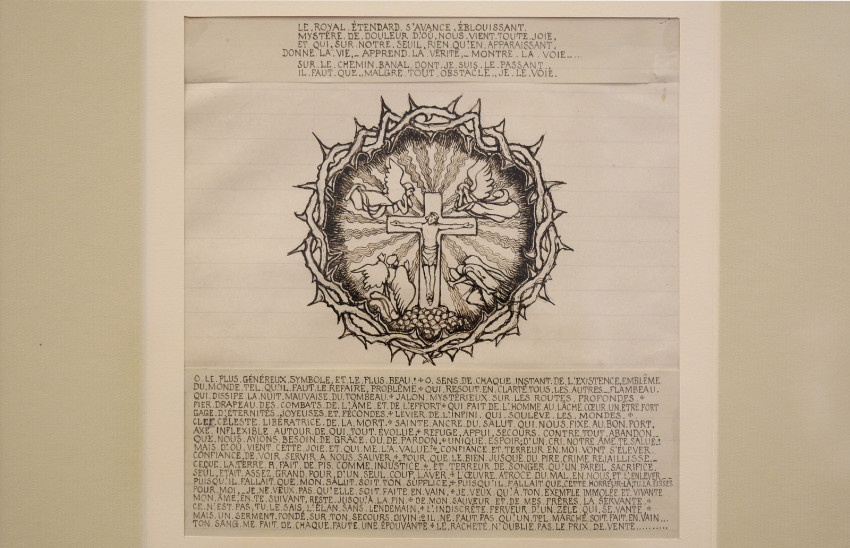 LE.ROYAL.ÉTENDARD.S'AVANCE.ÉBLOUISSANT.
MYSTÈRE.DE.DOULEUR.D'OÙ.NOUS.VIENT.TOUTE.JOIE,
ET.QUI,SUR.NOTRE.SEUIL,RIEN.QU'EN.APPARAISSANT,
DONNE.LA.VIE,_APPREND.LA.VÉRITÉ,_MONTRE.LA.VOIE_...
SUR.LE.CHEMIN.BANAL.DONT.JE.SUIS.LE.PASSANT
IL.FAUT.QUE,,MALGRE.TOUT.OBSTACLE,,JE.LE.VOIE.
O.LE.PLUS.GÉNÉREUX.SYMBOLE,ET.LE.PLUS.BEAU!+O.SENS.DE.CHAQUE.INSTANT.DE.L'EXISTENCE,EMBLÈME
DU.MONDE.TEL.QU'IL.FAUT.LE.REFAIRE,PROBLÈME+QUI.RESOUT.EN.CLARTÉ.TOUS.LES.AUTRES_FLAMBEAU.
QUI.DISSIPE.LA.NUIT.MAUVAISE.DU.TOMBEAU+JALON.MYSTÉRIEUX.SUR.LES.ROUTES.PROFONDES+
FIER.DRAPEAU.DES.COMBATS.DE.L'ÂME.ET.DE.L'EFFORT+QUI.FAIT.DE.L'HOMME.AU.LÂCHE.CŒUR.UN.ÊTRE.FORT
GAGE.D'ÉTERNITÉS.JOYEUSES.ET.FÉCONDES+LEVIER.DE.L'INFINI,QUI.SOULÈVE.LES.MONDES.+
CLEF.CÉLESTE.LIBÉRATRICE.DE.LA.MORT.+SAINTE.ANCRE.DU.SALUT.QUI.NOUS.FIXE.AU.BON.PORT,
AXE.INFLEXIBLE.AUTOUR.DE.QUI.TOUT.ÉVOLUE,+REFUGE,APPUI,SECOURS.CONTRE.TOUT.ABANDON_
QUE.NOUS.AYIONS.BESOIN.DE.GRÂCE.OU.DE.PARDON,+UNIQUE.ESPOIR;D'UN.CRI,NOTRE.ÂME.TE.SALUE!
MAIS.D'OÙ.VIENT.CETTE.JOIE.ET.QUI.ME.L'A.VALUE?+CONFIANCE.ET.TERREUR.EN.MOI.VONT.S'ÉLEVER.
CONFIANCE,DE.VOIR.SERVIR.A.NOUS.SAUVER,+POUR.QUE.LE.BIEN.JUSQUE.DU.PIRE.CRIME.REJAILLISSE_
CE.QUE.LA.TERRE.A.FAIT.DE.PIS.COMME.INJUSTICE.+ET.TERREUR.DE.SONGER.QU'UN.PAREIL.SACRIFICE,
SEUL,ETAIT.ASSEZ.GRAND.POUR,D'UN.SEUL.COUP.LAVER+L'ŒUVRE.ATROCE.DU.MAL.EN.NOUS,ET.L'ENLEVER_
PUISQU'IL.FALLAIT.QUE.MON.SALUT.SOIT.TON.SUPPLICE,+PUISQU'IL.FALLAIT.QUE.CETTE.HORREUR.LÀ.TU.LA.FISSES
POUR.MOI_JE.NE.VEUX.PAS.QU'ELLE.SOIT.FAITE.EN.VAIN,+JE.VEUX.QU'A.TON.EXEMPLE.IMMOLÉE.ET.VIVANTE
MON.ÂME,EN.TE.SUIVANT,RESTE.JUSQU'À.LA.FIN+DE.MON.SAUVEUR.ET.DE.MES.FRÈRES.LA.SERVANTE.+
CE.N'EST.PAS,TU.LE.SAIS,L'ÉLAN.SANS.LENDEMAIN,+L'INDISCRÈTE.FERVEUR.D'UN.ZÈLE.QUI.SE.VANTE+
MAIS.UN.SERMENT.FONDÉ.SUR.TON.SECOURS.DIVIN:+IL.NE.FAUT.PAS.QU'UN.TEL.MARCHÉ.SOIT.FAIT.EN.VAIN...
TON.SANG.ME.FAIT.DE.CHAQUE.FAUTE.UNE.ÉPOUVANTE+LE.RACHETÉ.N'OUBLIE.PAS.LE.PRIX.DE.VENTE..........